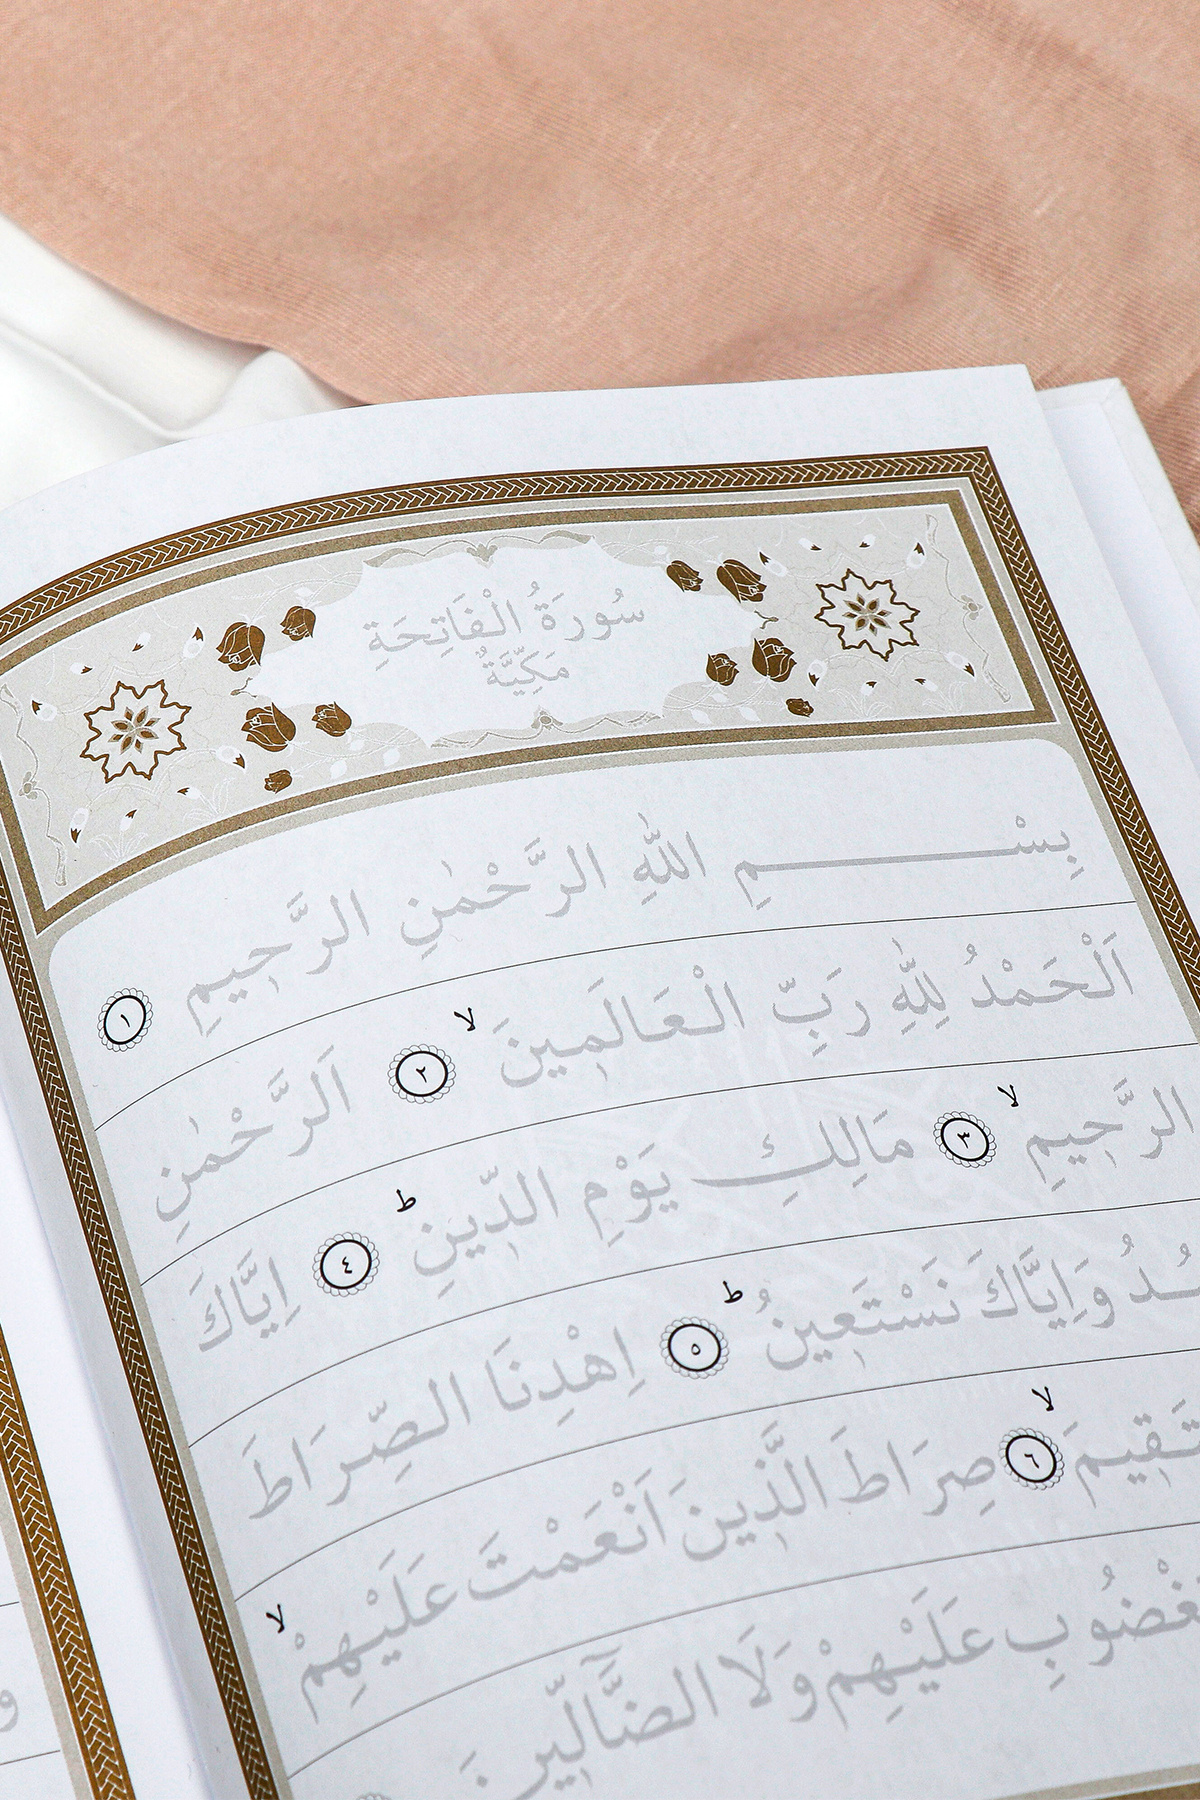 سُورَةُ الْفَاتِحَةِ
مَكِّيَّةٌ
بِسْــــــــمِ اللّٰهِ الرَّحْمٰنِ الرَّحٖيمِ ١
اَلْحَمْدُ لِلّٰهِ رَبِّ الْعَالَمٖينَ ۙ ٢ اَلرَّحْمٰنِ
الرَّحٖيمِ ۙ ٣ مَالِكِ يَوْمِ الدّٖينِ ؕ ٤ اِيَّاكَ
ـبُدُ وَاِيَّاكَ نَسْتَعٖينُ ؕ ٥ اِهْدِنَا الصِّرَاطَ
ـتَقٖيمَ ۙ ٦ صِرَاطَ الَّذٖينَ اَنْعَمْتَ عَلَيْهِمْ ۙ
ـغْضُوبِ عَلَيْهِمْ وَلَا الضَّٓالّٖينَ